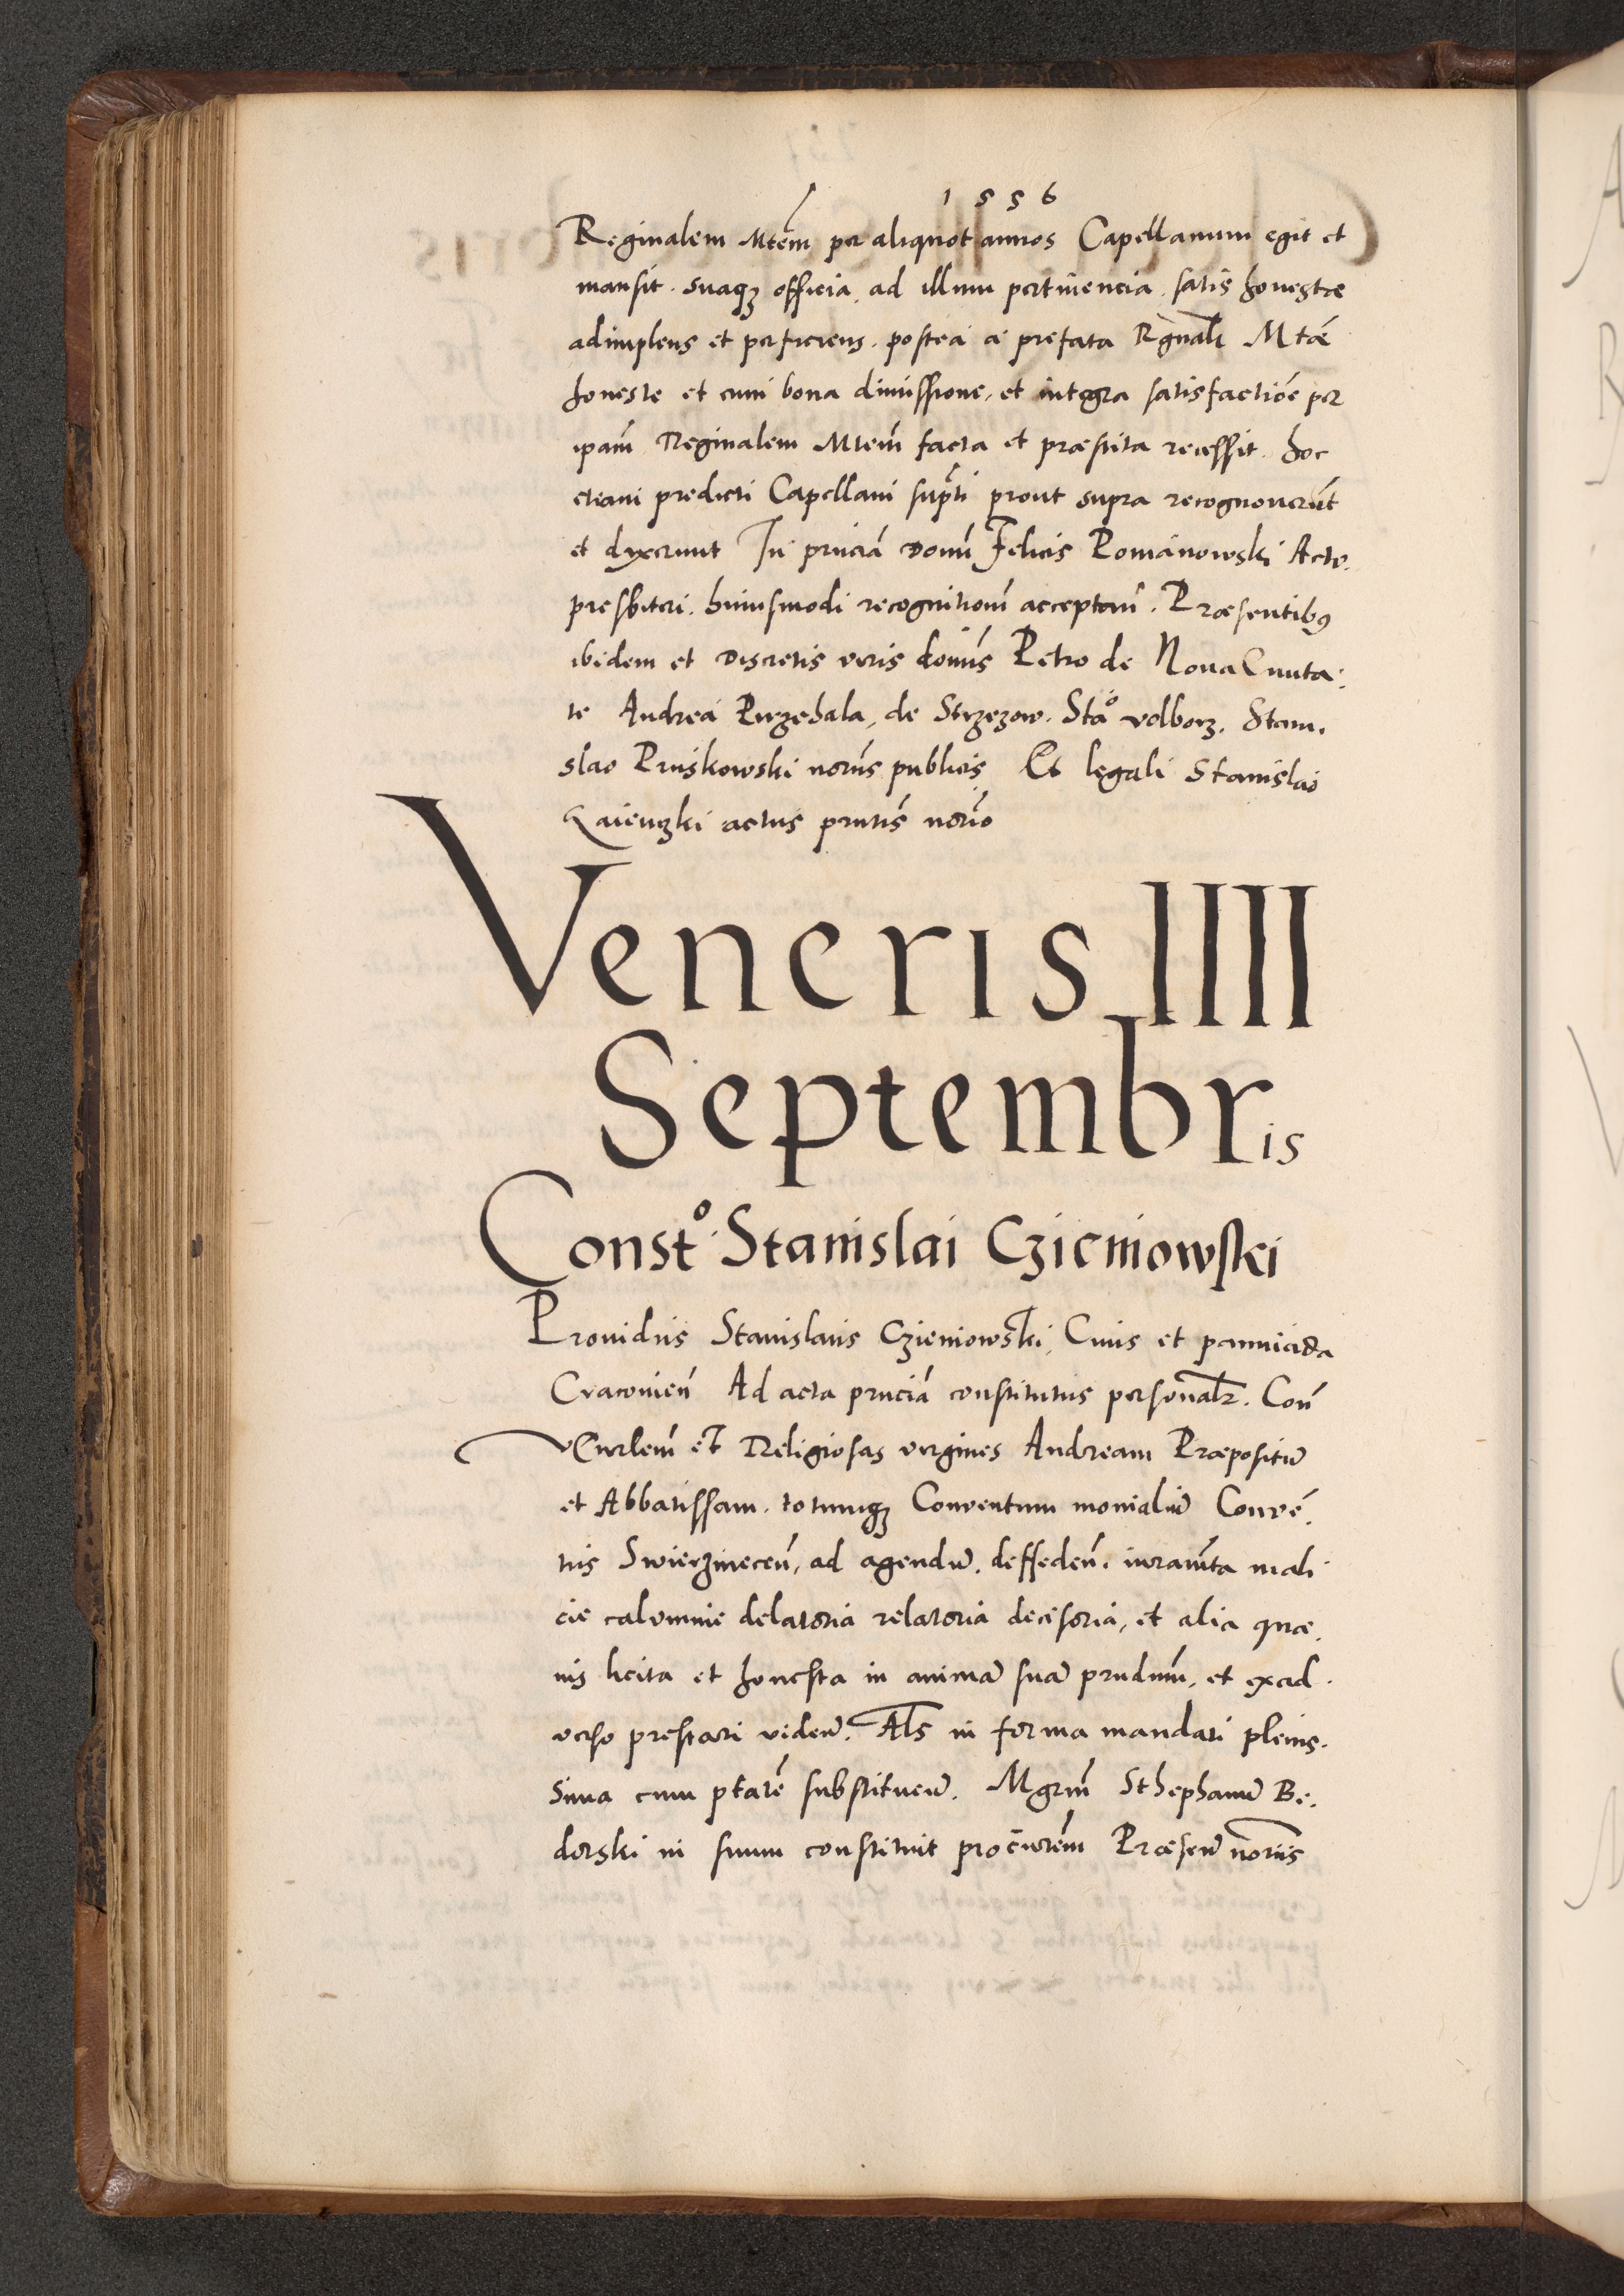 1556
Reginalem Mtem̃ per aliquot annos Capellanum egit et
mansit. suaqȝ officia ad illum pertinencia satis honestæ
adimplens et perficiens. postea a prefata Rgnali Mtæ
honeste et cum bona dimissione, et integra satisfactiõe per
ipam̃ Reginalem Mtem̃ facta et præstita recessit. hoc
etiam predicti Capellani sup̃ti prout supra recognouerũt
et dixerunt In pn̄ciã Domĩ Felicis Romanowski Acto.
presbiteri. huiusmodi recognitionm̃ acceptan̄. Præsentibꝰ
ibidem et Discretis viris domĩs Petro de Noua Ciuita:
te Andrea Przehala, de Strzezow. Staº volborz. Stani.
slao Pruskowski norĩs publicis Et legali Stanislao
actus pn̄tis norĩo
Veneris IIII
Septembris
Constº. Stanislai Czieniowski
Prouidus Stanislaus Czieniowski, Ciuis et pannicida
Cracouien̄ Ad acta pn̄ciã constitutus personalr. Con̄
Religiosas virgines Andream Præpositũ
et Abbatissam. totumqȝ Conventum monialiũ Convẽ.
tus Swierzinecen̄, ad agendũ. deffeden̄. iuramta mali
cie calumnie delatoria relatoria decisoria, et alia quæ.
uis licita et honesta in animã suã prestandum̃, et exad.
verso prestari viden̄. Als in forma mandati pleniss.
sima cum ptatẽ substituen̄. Mgrm̃ Sthephanũ Be.
dorski in suum constituit procurem̃ Præsen̄ norĩis